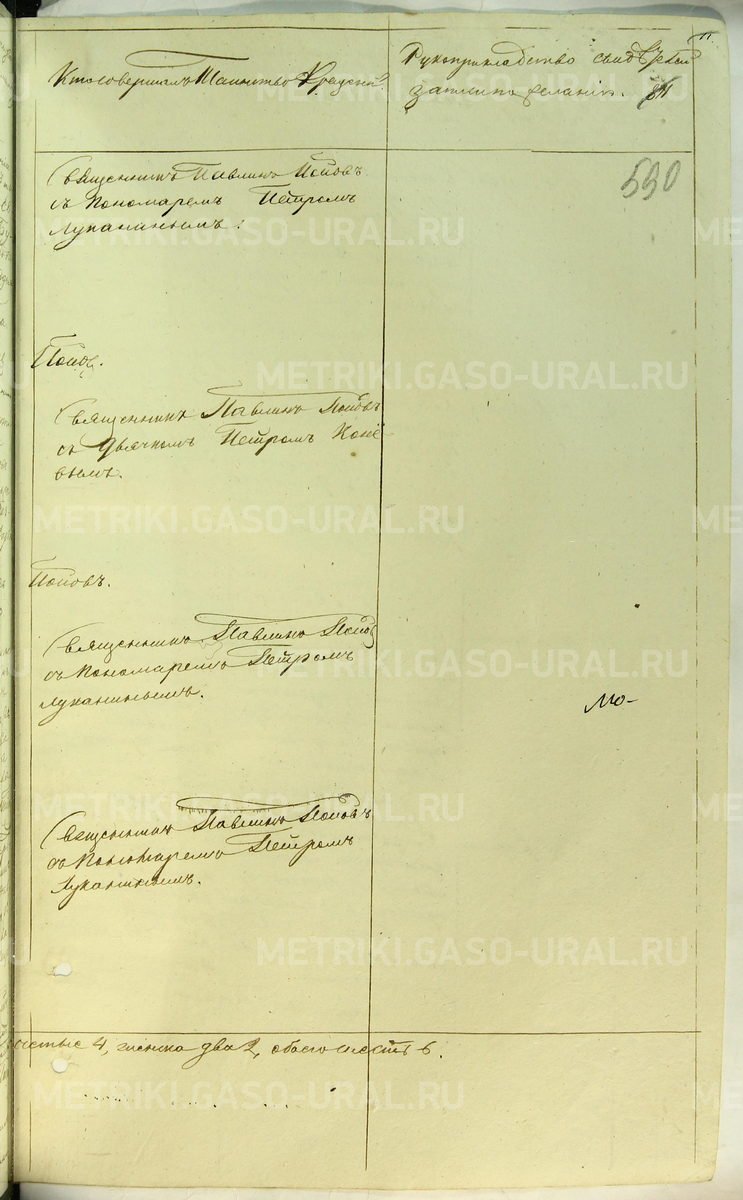 Кто совершалъ Таинство Крещенія
Рукоприкладство свидѣтелей
записи по желанію.
11
590
METRIKI.GASO-URAL.RU
Священникъ Павлинъ Поповъ
съ Пономаремъ Петромъ
Луканинымъ.
Поповъ.
METRIKI.GASO-URAL.RU
Священникъ Павлинъ Поповъ
съ Дьячкомъ Петромъ Коне
вымъ.
METRIKI.GASO-URAL.RU
Поповъ.
Священникъ Павлинъ Поповъ
съ Пономаремъ Петромъ
Луканинымъ.
METRIKI.GASO-URAL.RU
Священникъ Павлинъ Поповъ
съ Пономаремъ Петромъ
Луканинымъ.
METRIKI.GASO-URAL.RU
METRIKI.GASO-URAL.RU
4, женска два 2, обоего шесть 6.
METRIKI.GASO-URAL.RU